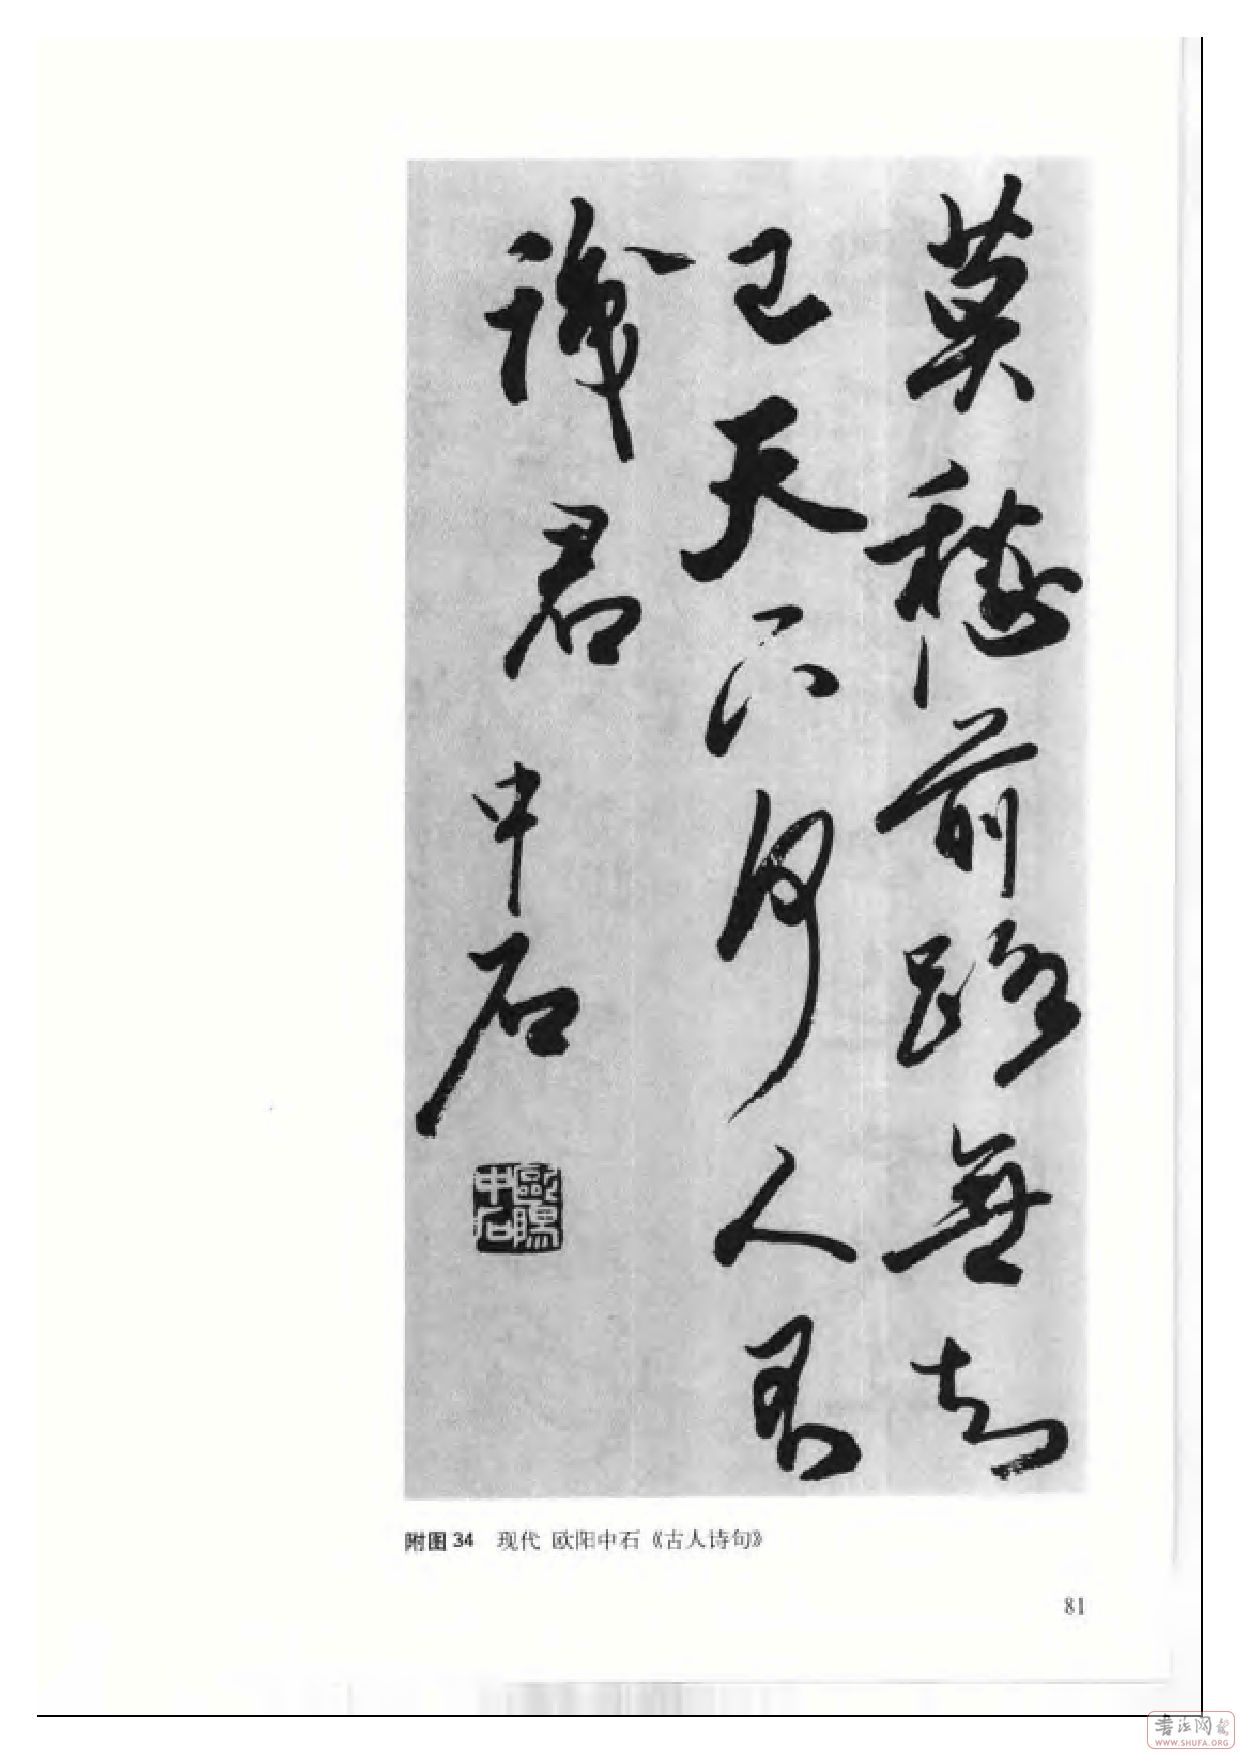 莫愁前路無知
己天下何人不
識君 中石
歐陽中石
附图34 现代 欧阳中石《古人诗句》
81
书法网
WWW.SHUFA.ORG